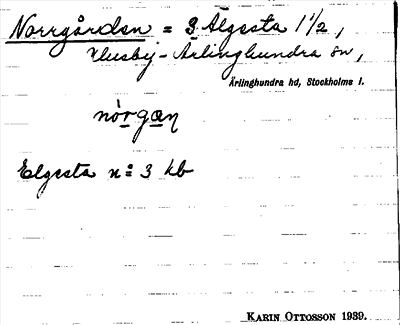 Norrgården = 3 Älgesta 1 1/2,
Husby-Ärlinghundra sn,
Ärlinghundra hd, Stockholms l.
nòrgan
Elgesta n:o 3 kb
KARIN OTTOSSON 1939.